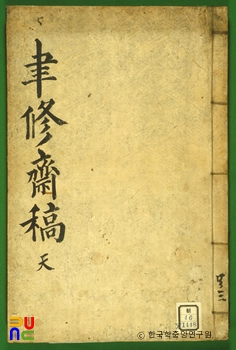 聿修齋稿
天
共三
ⓒ 한국학중앙연구원